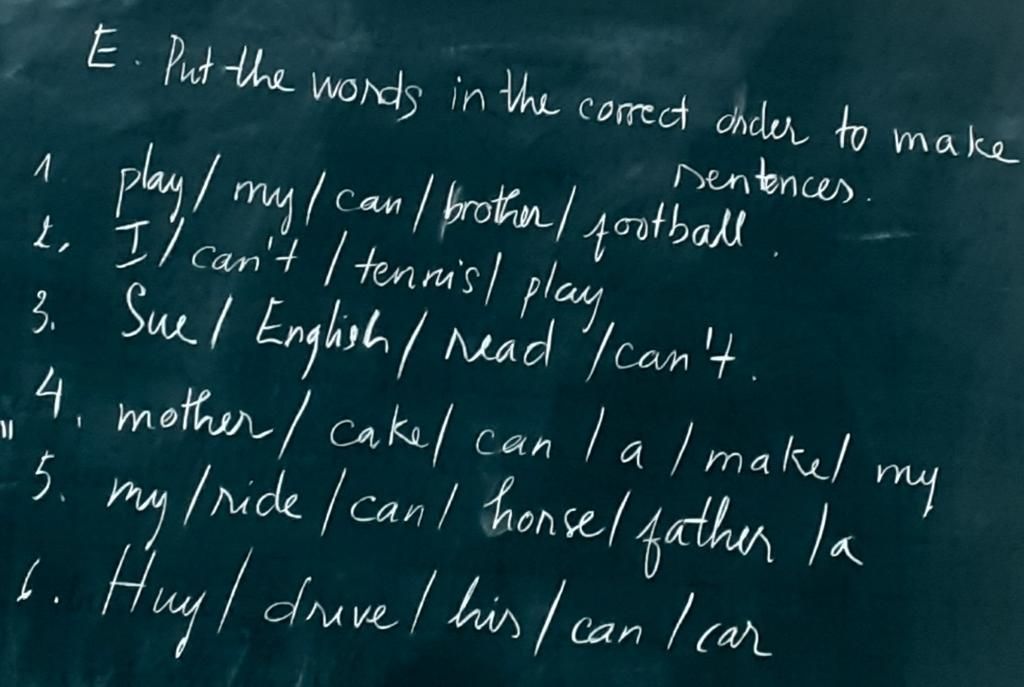 E. Put the words in the correct order to make
sentences.
1 play / my / can / brother / football.
2. I / can't / tennis / play
3. Sue / English / read / can't.
4. mother / cake / can / a / make / my
5. my / ride / can / horse / father / a
6. Huy / drive / his / can / car